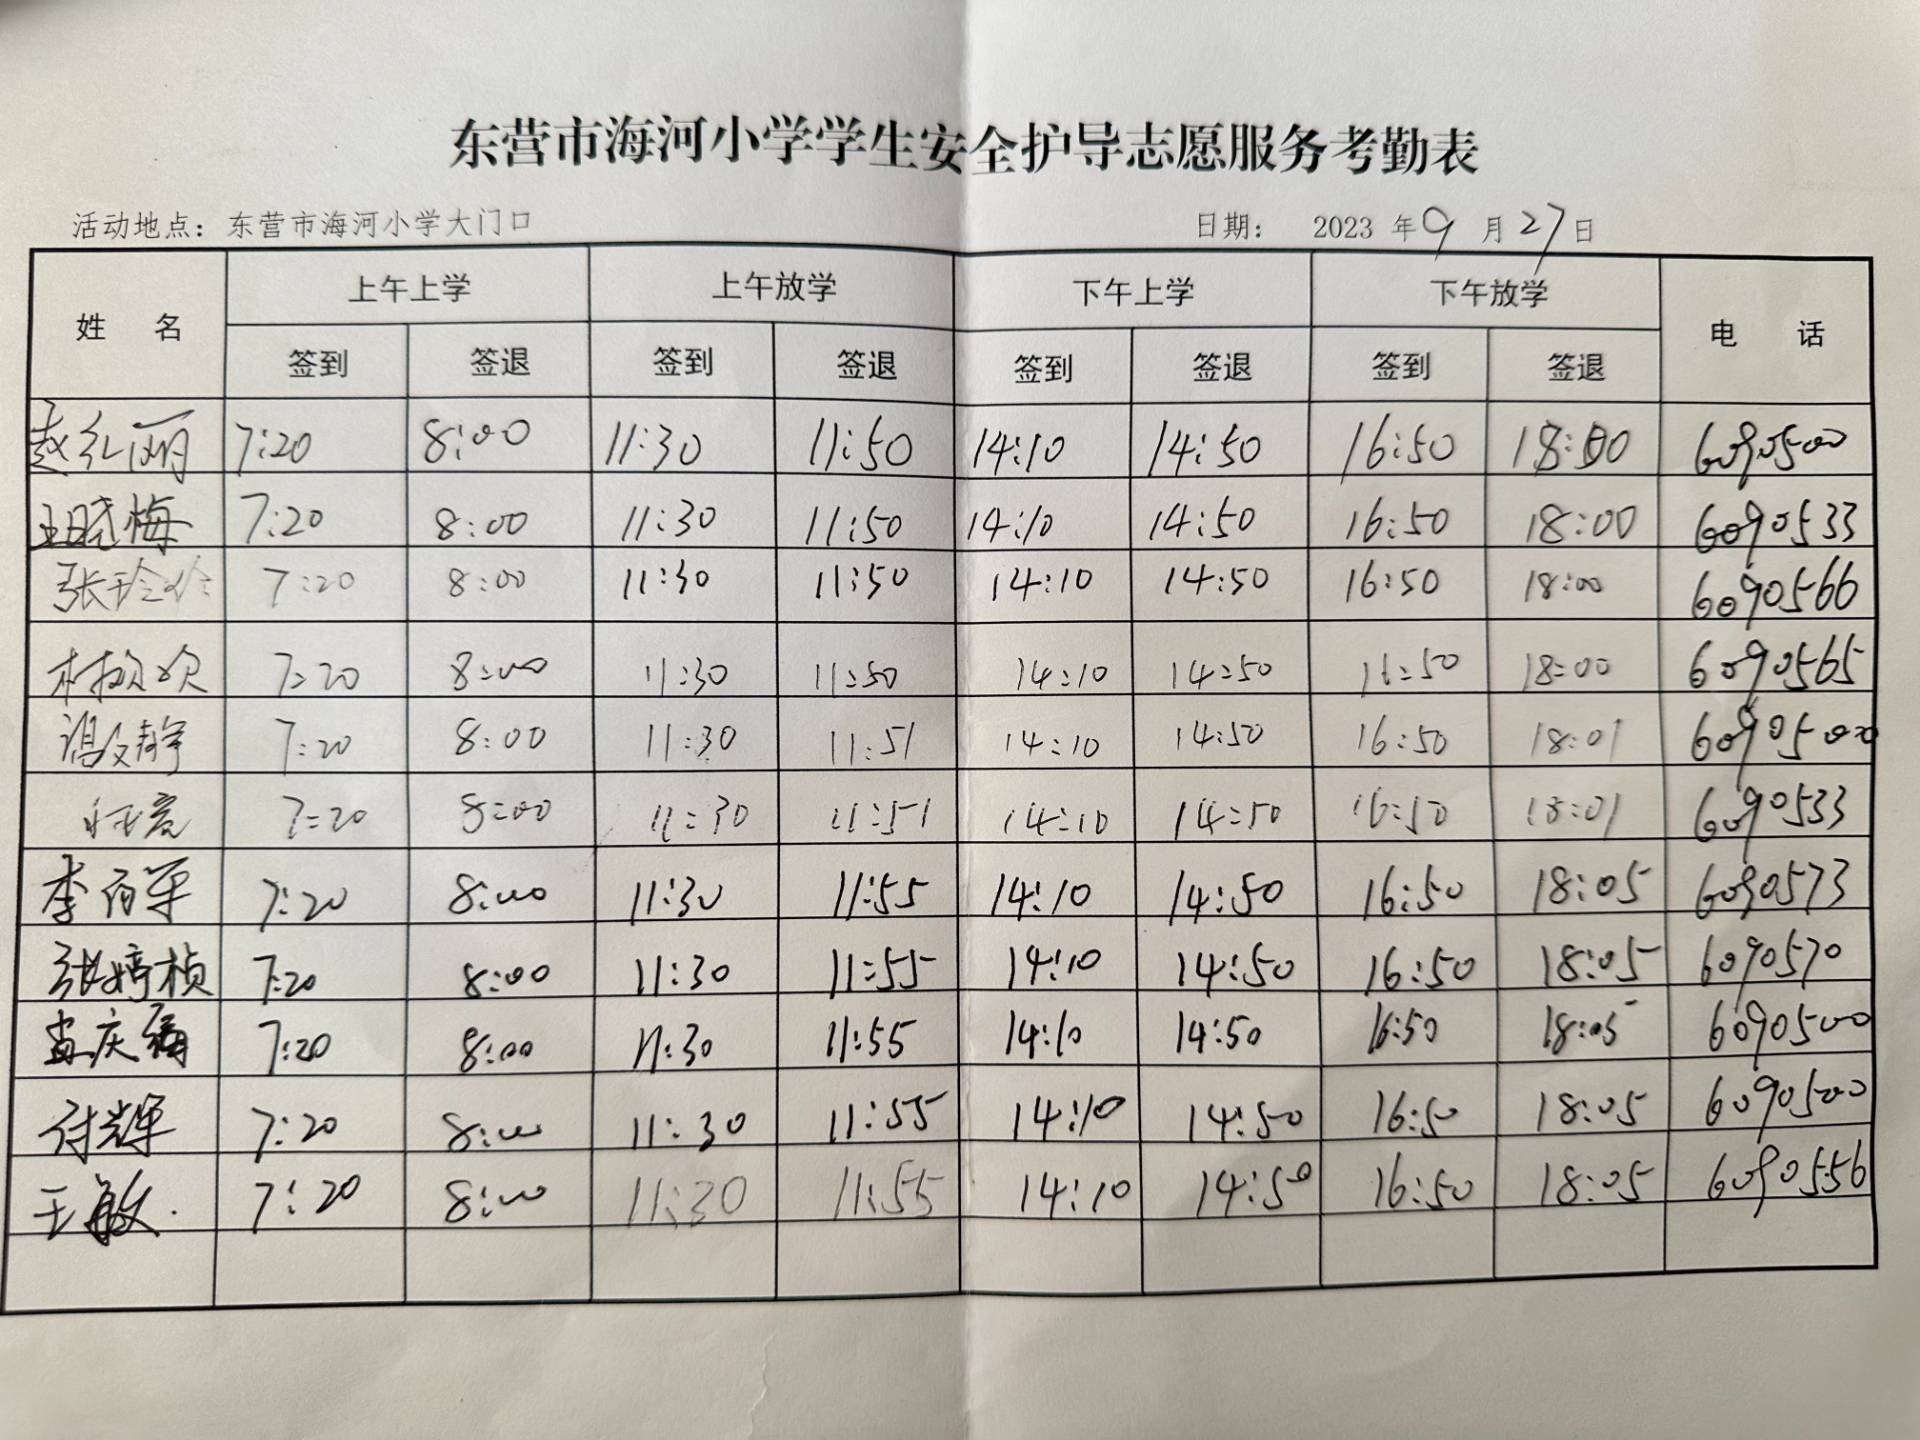 东营市海河小学学生安全护导志愿服务考勤表
活动地点：东营市海河小学大门口 日期： 2023 年 9 月 27 日
姓 名 上午上学 上午放学 下午上学 下午放学 电 话
签到 签退 签到 签退 签到 签退 签到 签退
赵红丽 7:20 8:00 11:30 11:50 14:10 14:50 16:50 18:00 6090500
王晓梅 7:20 8:00 11:30 11:50 14:10 14:50 16:50 18:00 6090533
张玲玲 7:20 8:00 11:30 11:50 14:10 14:50 16:50 18:00 6090566
7:20 8:00 11:30 11:50 14:10 14:50 16:50 18:00 6090565
冯文静 7:20 8:00 11:30 11:51 14:10 14:50 16:50 18:01 6090500
7:20 8:00 11:30 11:51 14:10 14:50 16:50 18:01 6090533
李丽军 7:20 8:00 11:30 11:55 14:10 14:50 16:50 18:05 6090573
张婷桢 7:20 8:00 11:30 11:55 14:10 14:50 16:50 18:05 6090570
孟庆 7:20 8:00 11:30 11:55 14:10 14:50 16:50 18:05 6090500
付辉 7:20 8:00 11:30 11:55 14:10 14:50 16:50 18:05 6090500
王敏 7:20 8:00 11:30 11:55 14:10 14:50 16:50 18:05 6090556